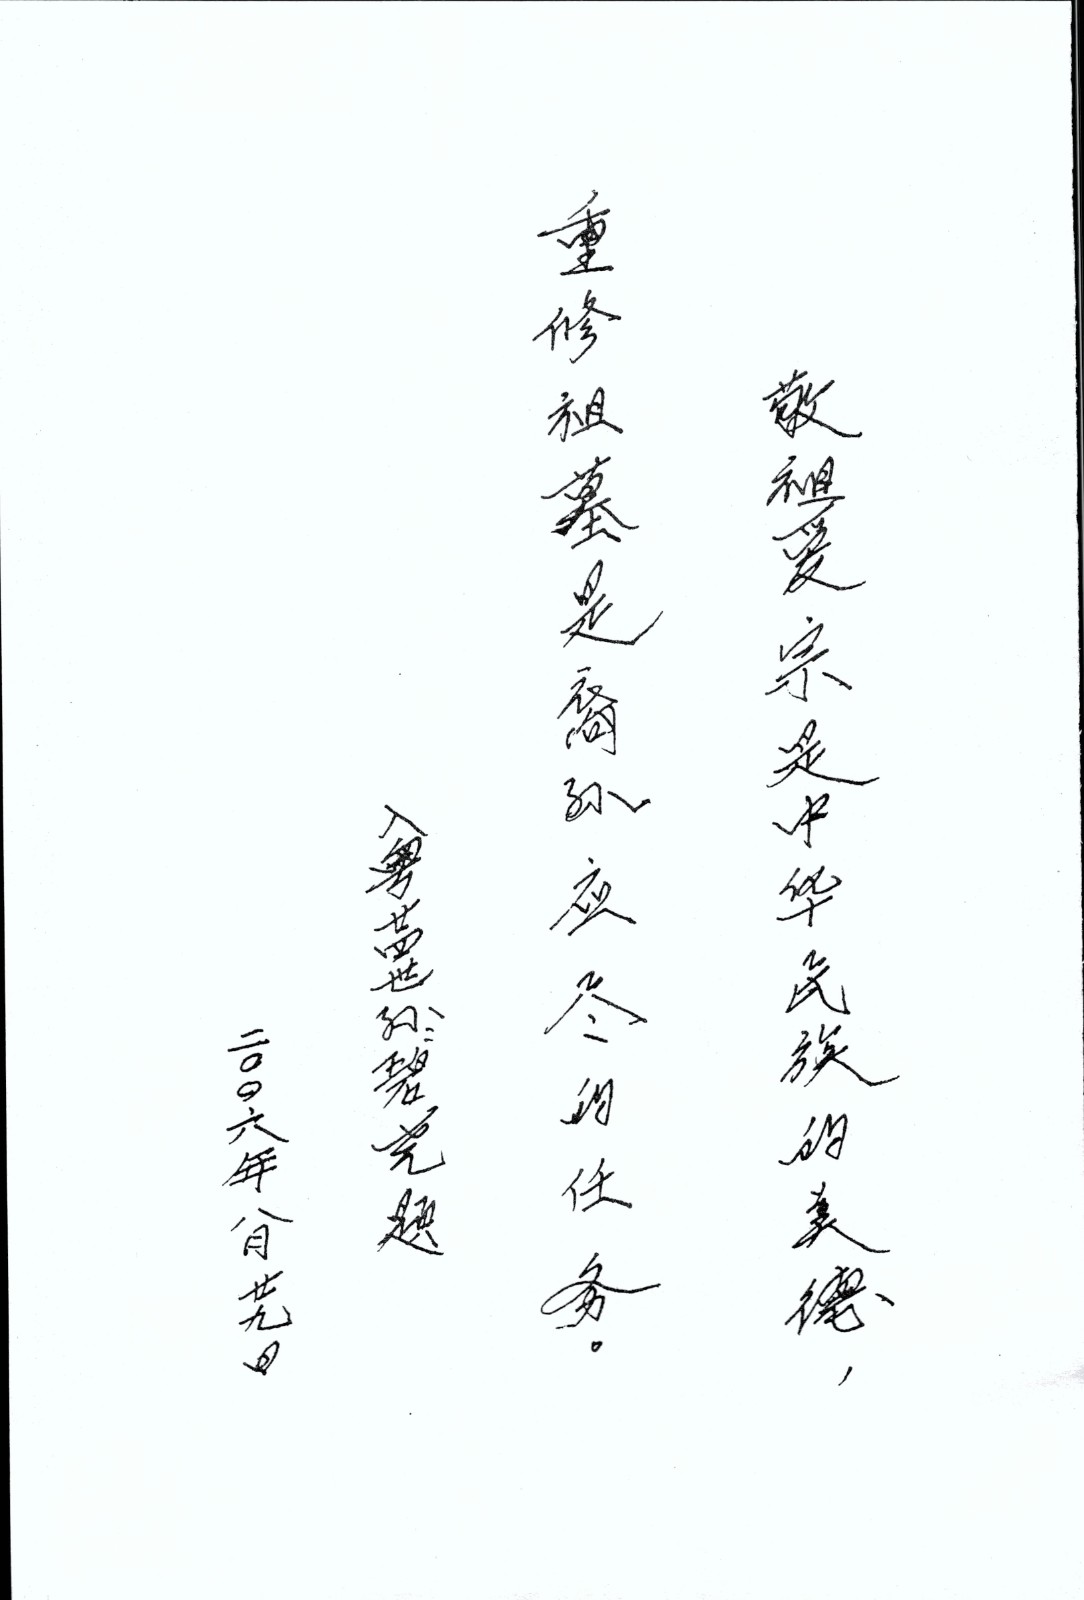 敬祖爱宗是中华民族的美德，
重修祖墓是裔孙应尽的任务。
入粤廿四世孙碧光题
二00六年八月廿九日